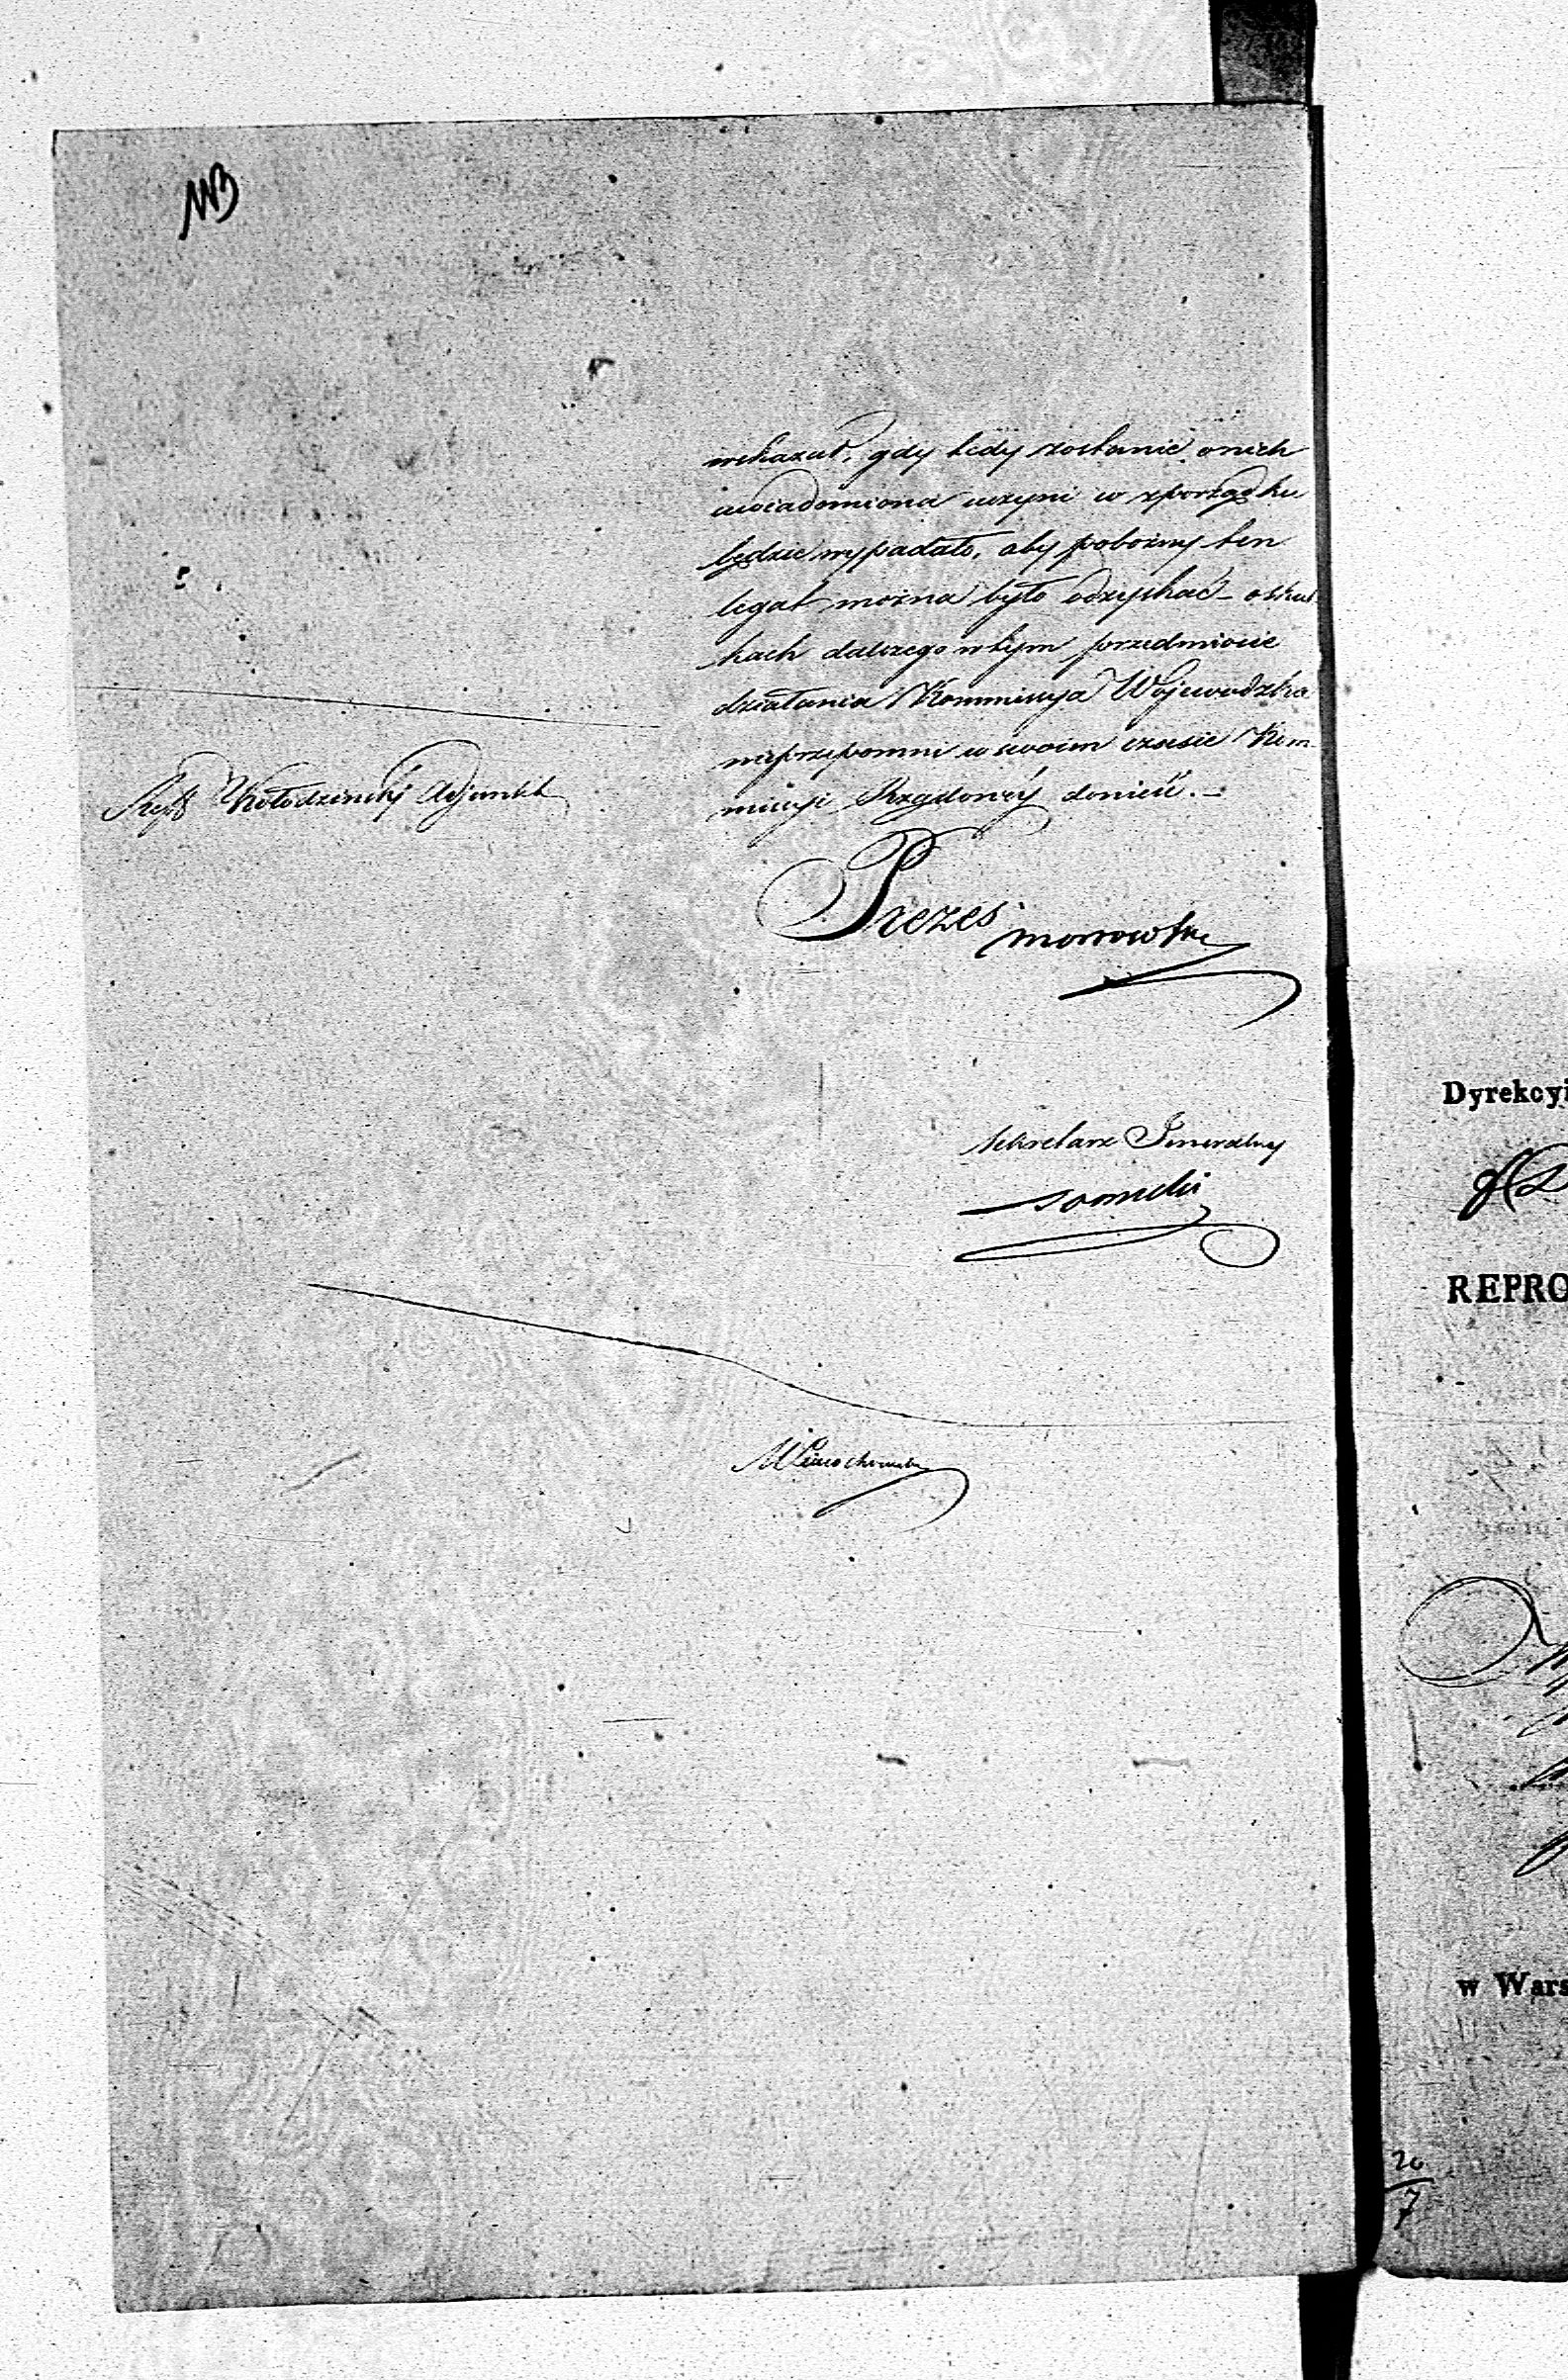 wskazał, gdy tedy zostanie o nich
uwiadomiona uczyni co z porządku
będzie wypadało, aby pobożny ten
legat można było odzyskać – o skut
kach dalszego w tym przedmiocie
działania Kommissya Wojewodzka
nieprzepomni w swoim czasie Kom
missyi Rządowéy donieść. –
Kołodzinski Adjunkt
Prezes
Sekretarz Generalny
Dyrekcyi
REPRO
w Wars
20
7